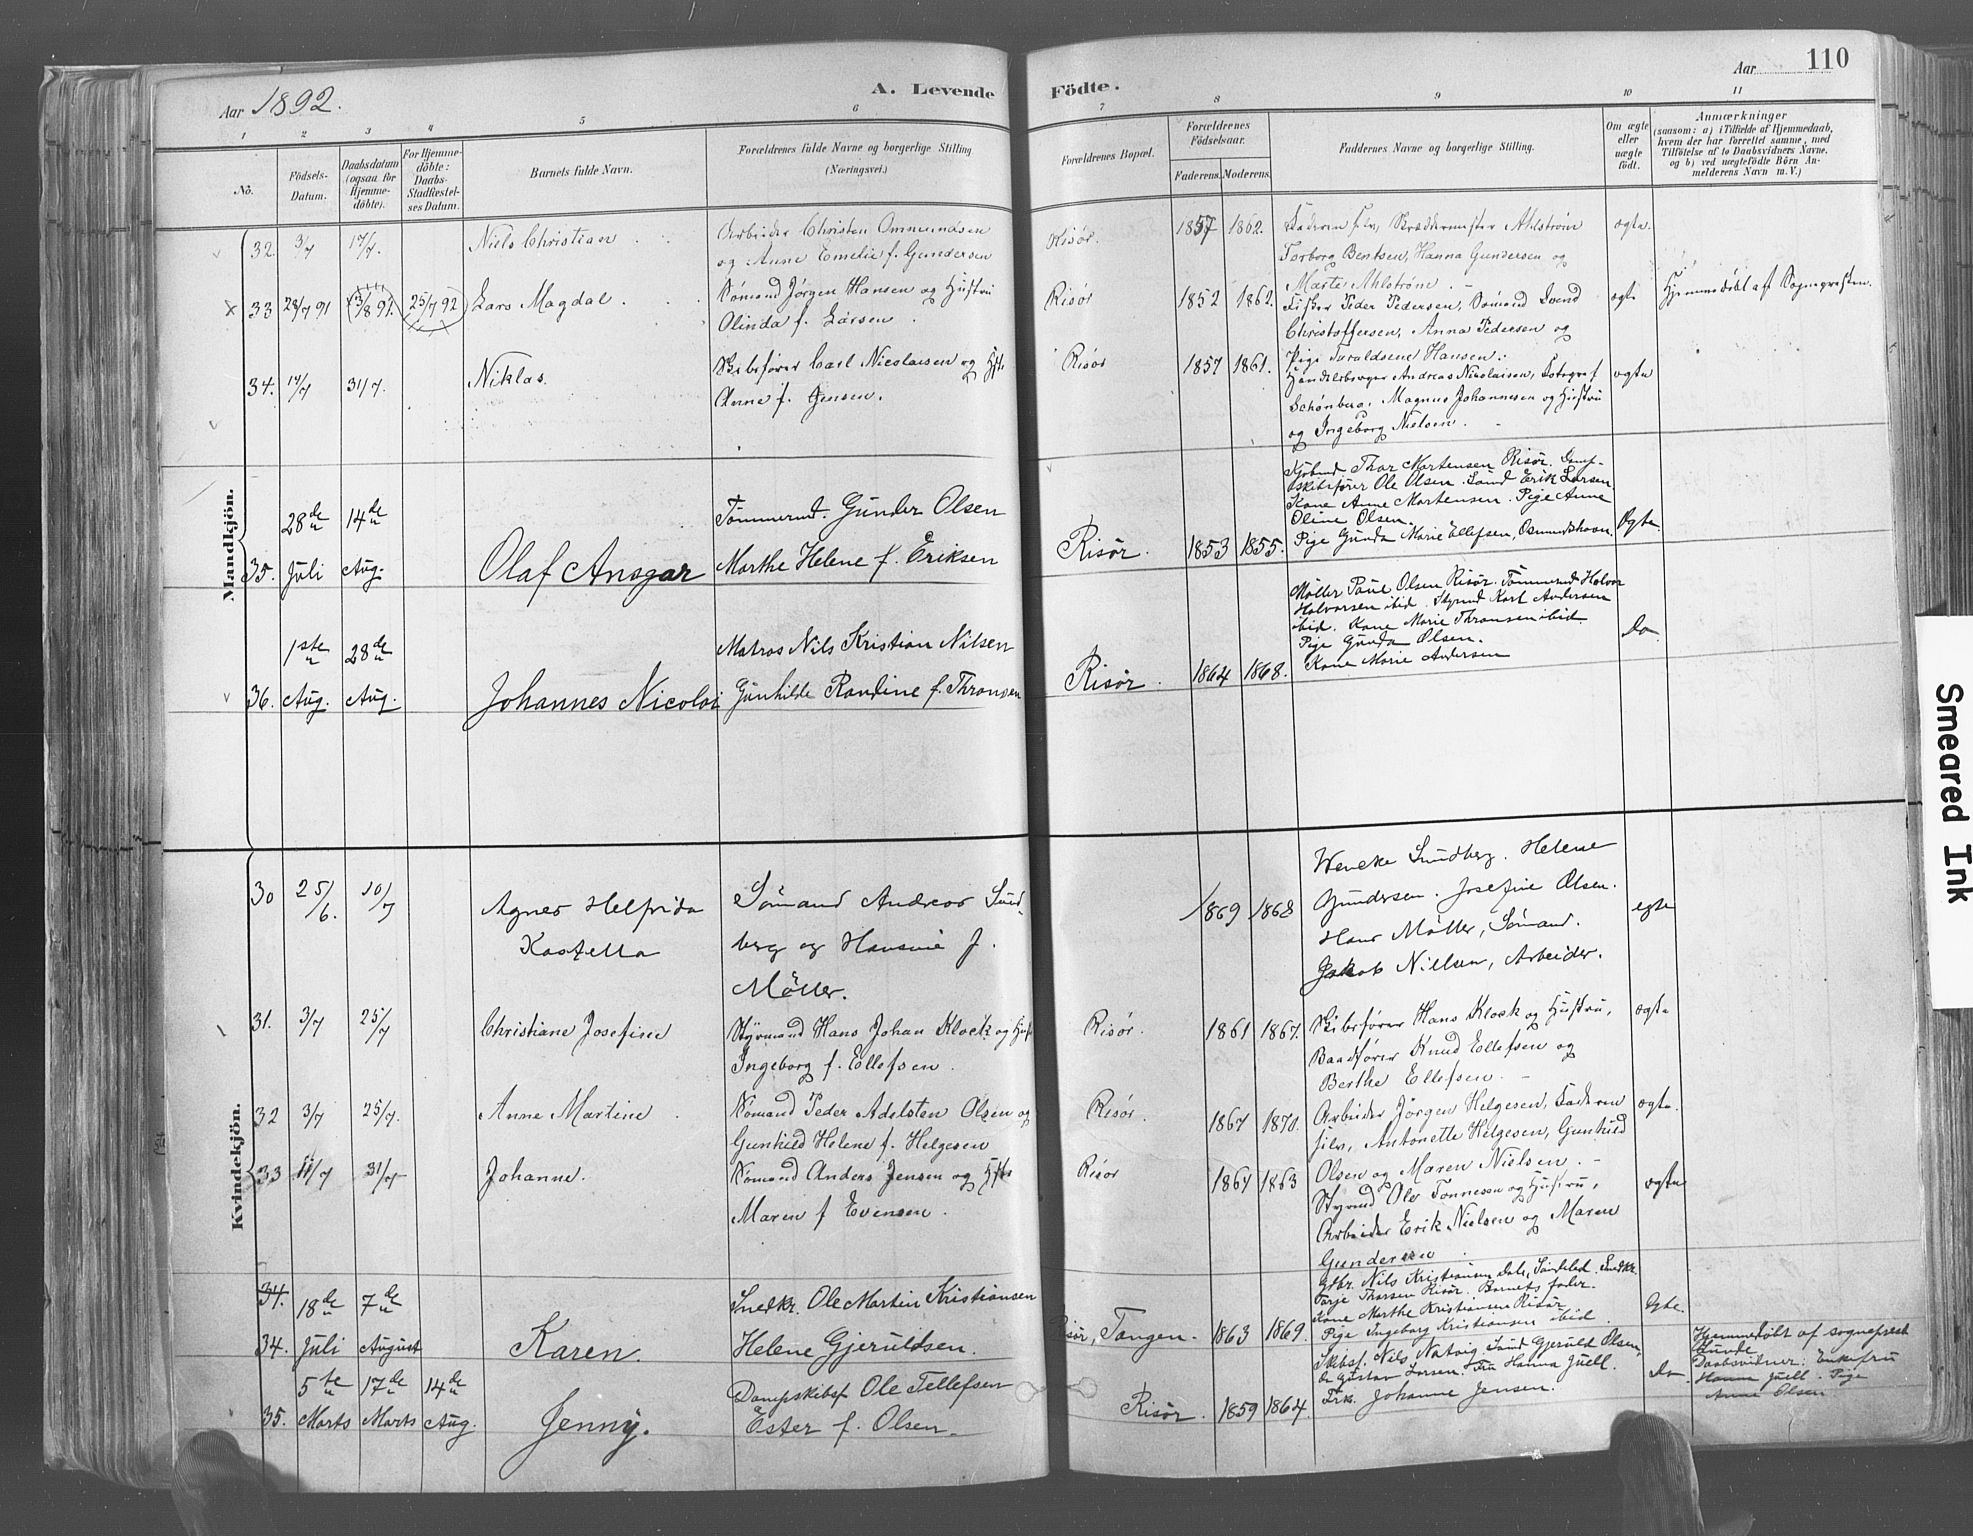 110
Aar 1892.
A. Levende Födte.
Aar
1 2 3 4 5 6 7 8 9 10 11
No.
Födsels-
Datum.
Daabsdatum
(ogsaa for
Hjemme-
döbte).
For Hjemme-
döbte:
Daabs-
Stadfæstel-
ses Datum.
Barnets fulde Navn.
Forældrenes fulde Navne og borgerlige Stilling
(Næringsvei.)
Forældrenes Bopæl.
Forældrenes
Födselsaar.
Faderens. Moderens.
Faddernes Navne og borgerlige Stilling.
Om ægte
eller
uægte
födt.
Anmærkninger
(saasom: a) i Tilfælde af Hjemmedaab,
hvem der har forrettet samme, med
Tilföielse af to Daabsvidners Navne,
og b) ved uægtefödte Börn An-
melderens Navn m. V.)
Mandkjön.
32. 3/7 17/7. Niels Christian
Arbeider Christen Ommundsen
og Anne Emelie f. Gundersen
Risør. 1857 1862.
Faderen selv, Skræddermester Ahlstrøm
Torborg Bentsen, Hanna Gundersen og
Marte Ahlstrøm.
ægte.
33 28/7 91 (3/8 91.) 25/7 92 Lars Magdal.
Sømand Jørgen Hansen og Hustru
Olinda f. Larsen.
Risør 1852 1862.
Fisker Peder Pedersen, Sømand
Christoffersen, Anna Pedersen og
Pige Hansen.
ægte
Hjemmedøbt af Sognepresten.
34. 14/7 31/7. Niklas.
Skibsfører Carl Nicolaisen og Hst.
Anne f. Jensen.
Risør 1857 1861.
Handelsborger Andreas Nicolaisen, Fotograf
Schønberg, Magnus Johannesen og Hustru
og Ingeborg Nielsen.
ægte
35. 28de Juli 14de Aug. Olaf Ansgar
Tømmermd. Gunder Olsen
Marthe Helene f. Eriksen
Risør. 1853 1855.
Thor Mortensen Risør. Damp-
skibsfører Ole Olsen. Sømd Erik Larsen
Kone Anne Mortensen. Pige Anne
Oline Olsen.
Pige Gunda Marie Ellefsen, Osmundshavn.
Ægte.
36. 1ste Aug. 28de Aug. Johannes Nicolai
Matros Nils Kristian Nilsen
Gunhilde Randine f. Thronsen
Risør. 1864 1868.
Møller Paul Olsen Risør. Tømmermd Halvor
Halvorsen ibid. Styrmd Karl Andersen
ibid. Kone Marie Thronsen ibid
Pige Gunda Olsen.
Kone Marie Andersen
Do.
Kvindekjön.
30 25/6. 10/7 Agnes Helfrida
Kastella
Sømand Andreas Sund-
berg og Hansine f.
Möller.
1869 1868
Wencke Sundberg. Helene
Gundersen. Josefine Olsen.
Hans Möller, Sömand.
Jakob Nielsen, Arbeider.
egte
31. 3/7 25/7 Christiane Josefine
Styrmand Hans Johan Klock og Hust
Ingeborg f. Ellefsen.
Risør. 1861 1867.
Skibsfører Hans Klock og Hustru,
Baadfører Knud Ellefsen og
Berthe Ellefsen.
ægte
32 3/7 25/7. Anne Martine
Sømand Peder Adelsten Olsen og
Gunhild Helene f. Helgesen
Risør. 1867 1870.
Arbeider Jørgen Helgesen, Faderen
selv, Antonette Helgesen, Gunhild
Olsen og Maren Nielsen.
ægte.
33 11/7 31/7 Johanne.
Sømand Anders Jensen og Hst.
Maren f Evensen.
Risør 1867 1863
Styrmd Ole Tønnesen og Hustru,
Arbeider Erik Nielsen og Maren
Gundersen.
ægte
34.
34. 18de Juli 7de August Karen.
Snedkr. Ole Martin Kristiansen
Helene Gjeruldsen.
Risør, Tangen. 1863 1869.
Gdbr. Nils Kristiansen Dale, Søndeled. Snedkr.
Tarje Thorsen Risør. Barnets fader.
Kone Marthe Kristiansen Risør
Pige Ingeborg Kristiansen ibid.
Ægte.
35. 5te Marts 17de Marts 14de Aug. Jenny.
Dampskibsf. Ole Tellefsen
Ester f. Olsen.
Risør. 1859 1864.
Skibsf. Nils Natvig. Sømd Gjeruld Olsen,
Do Gustav Larsen. Fru Hanna Juell.
Frk. Johanne Jensen.
Do
Hjemmedøbt af sogneprest
Lunde
Daabsvidner: Enkefru
Hanna Juell. Pige
Anne Olsen
Smeared Ink